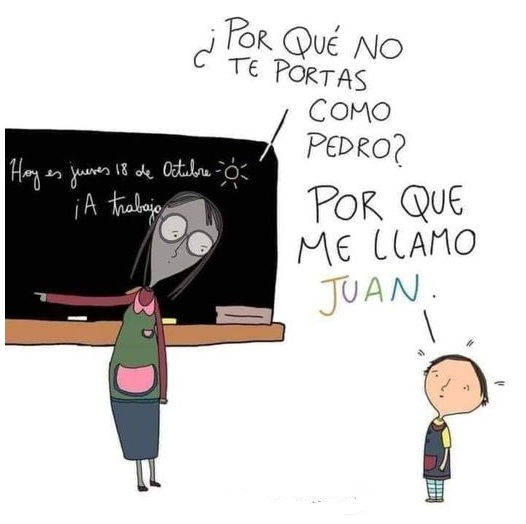 ¿POR QUÉ NO
TE PORTAS
COMO
PEDRO?
Hoy es jueves 18 de Octubre
¡A trabajo
POR QUE
ME LLAMO
JUAN.